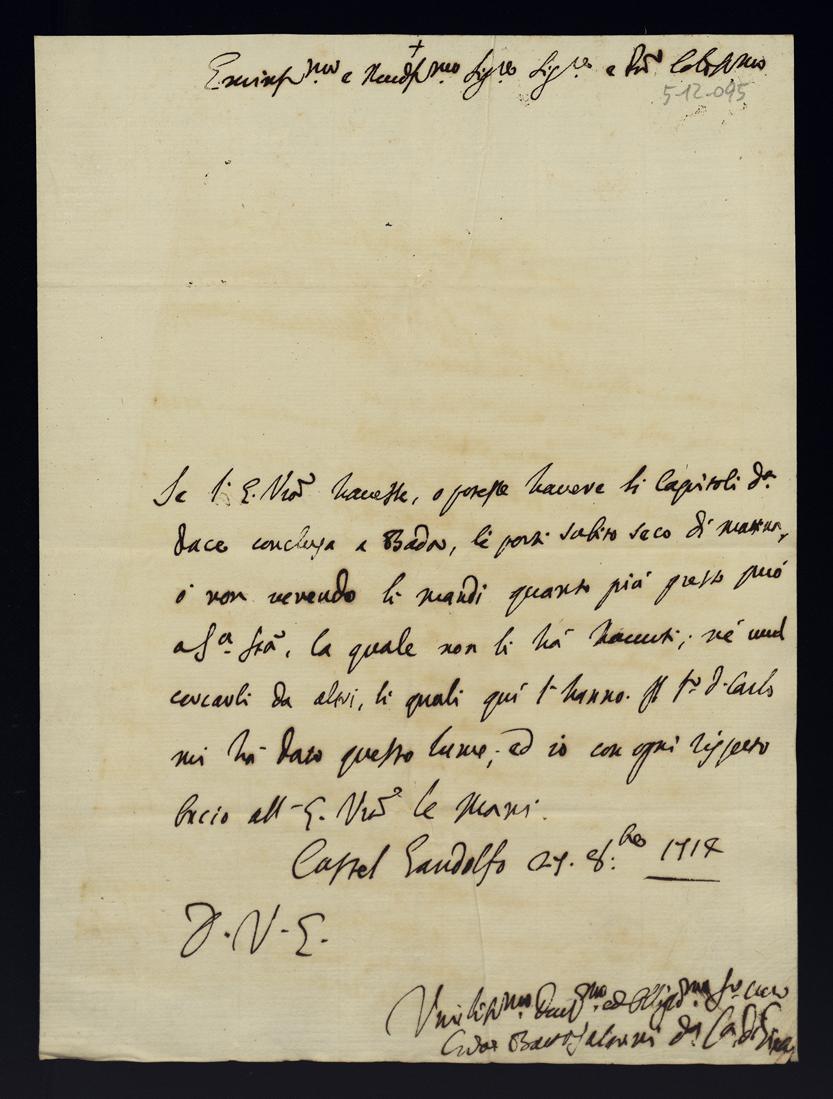 +
Eminmo e Rendmo Sigre Sigre e Pne Colmo
5-12-095
Se l'E. Vra havesse, o potesse havere li Capitoli da
Pace conclusa a Bada, li porti subito seco di mattina,
ò non venendo li mandi quanto più presto può
a Sa Stà, la quale non li hà havuti; né vuol
cercarli da altri, li quali qui l'hanno. Il Sr d. Carlo
mi hà dato questo lume; ed io con ogni rispetto
bacio all'E. Vra le Mani.
Castel Gandolfo 27. 8:bre 1714
D. V. E.
Umilismo Devmo ed Obligmo Servre vero
Gio Batta